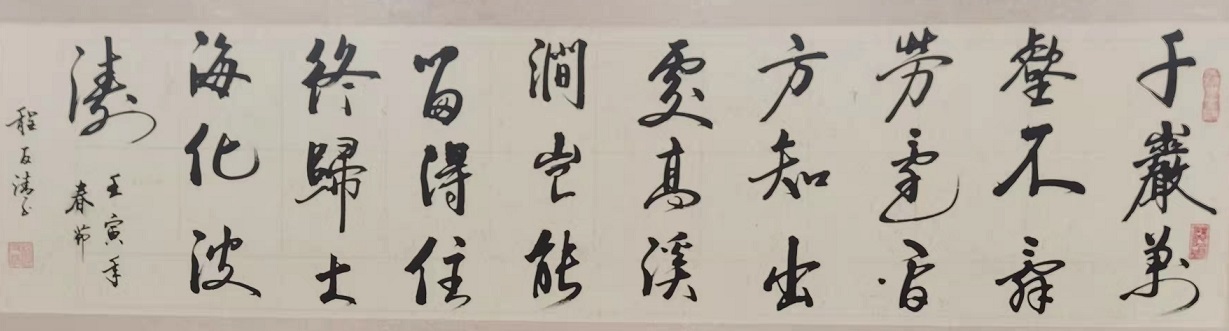 千巖萬
壑不辭
勞遠
方知出
處高溪
澗豈能
留得住
終歸大
海化波
濤
壬寅年
春節
程友清书